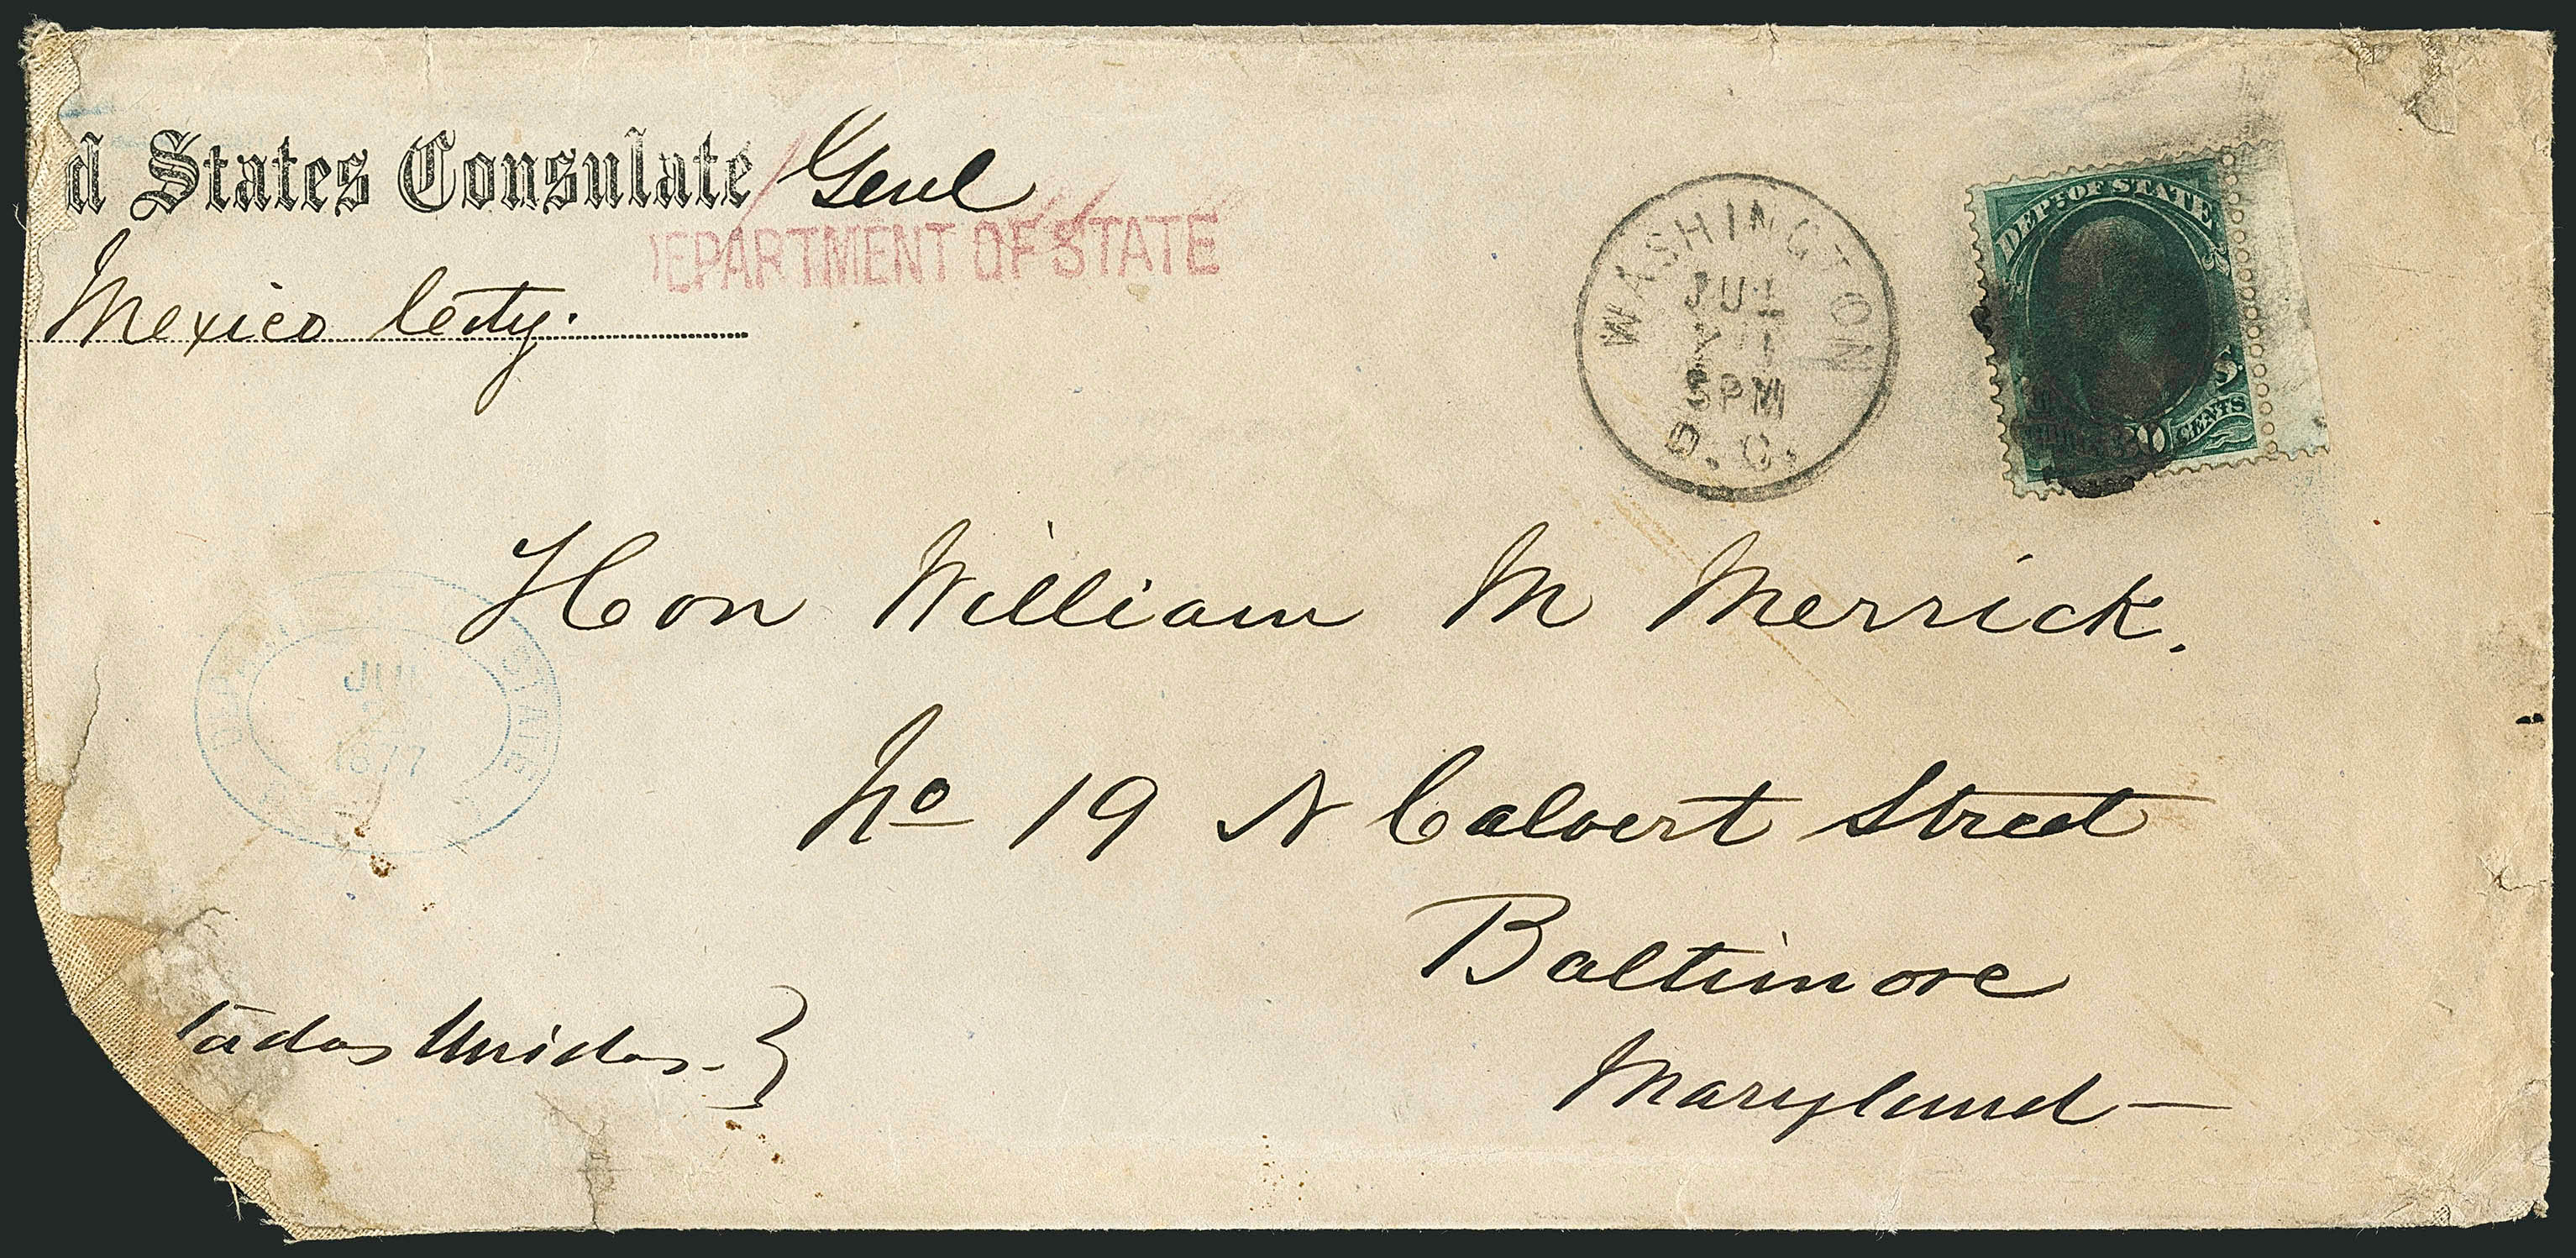 d States Consulate Genl
EPARTMENT OF STATE
Mexico City.
WASHINGTON
JUL
5PM
D. C.
DEPT. OF STATE
CENTS
Hon William M Merrick.
STATE
JUL
1877
No 19 N Calvert Street
Baltimore
tados Unidos.
Maryland